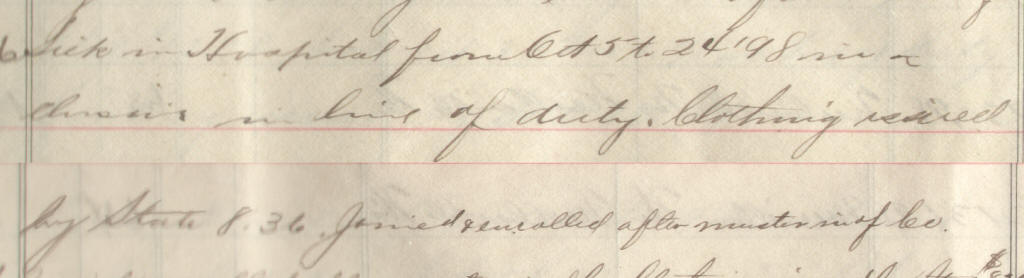 Sick in Hospital from Oct 5 to 24 '98 in
in line of duty. Clothing issued
by State 8.36. Joined & enrolled after muster in of Co.